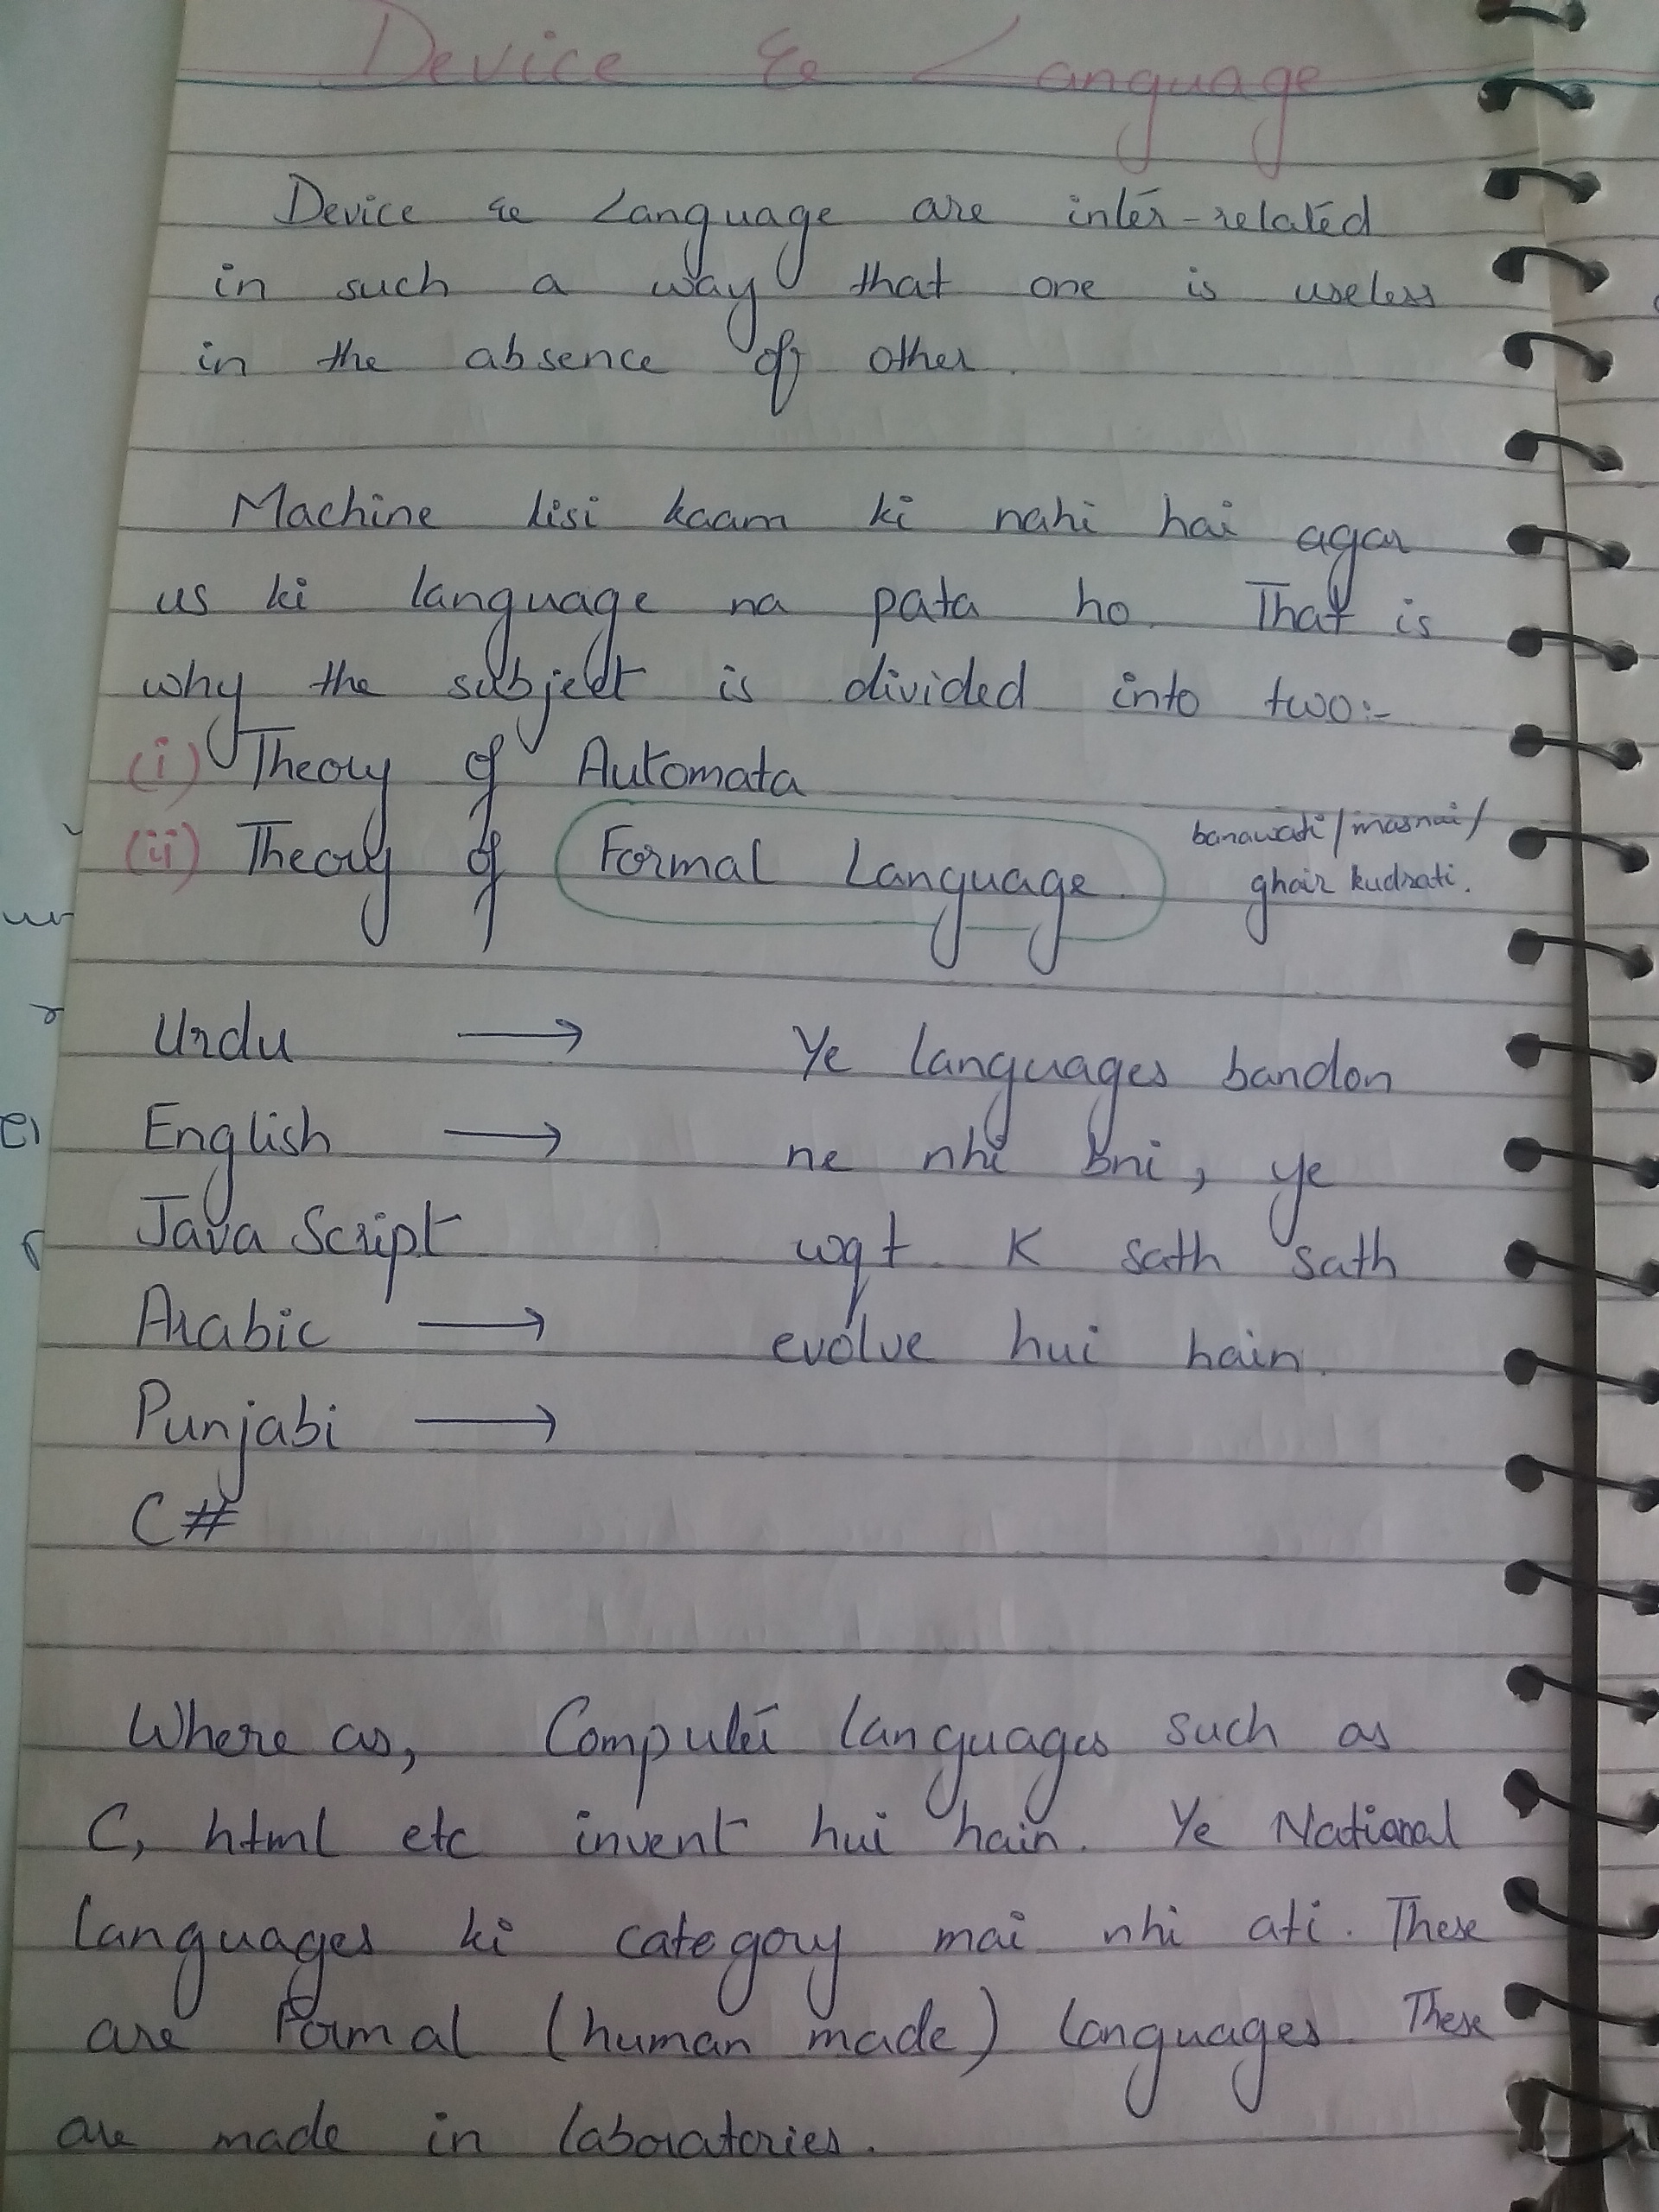 Device & Language
Device & Language are inter-related
in such a way that one is useless
in the absence of other.
Machine kisi kaam ki nahi hai agar
us ki language na pata ho. That is
why the subject is divided into two:-
(i) Theory of Automata
(ii) Theory of Formal Language
banawati/masnui/
ghair kudrati.
Urdu → Ye languages bandon
English → ne nhi bni, ye
Java Script wqt k sath sath
Arabic → evolve hui hain.
Punjabi →
C#
Where as, Computer languages such as
C, html etc invent hui hain. Ye National
languages ki category mai nhi ati. These
are Formal (human made) languages. These
are made in laboratories.